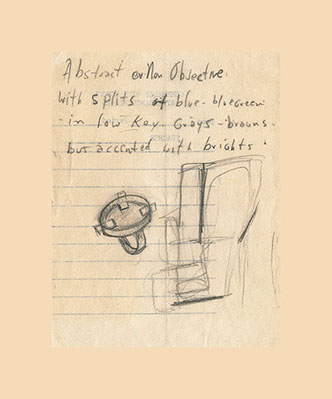 Abstract or Non Objective
with splits of blue-bluegreen
-in low key-Grays-browns-
but accented with brights.